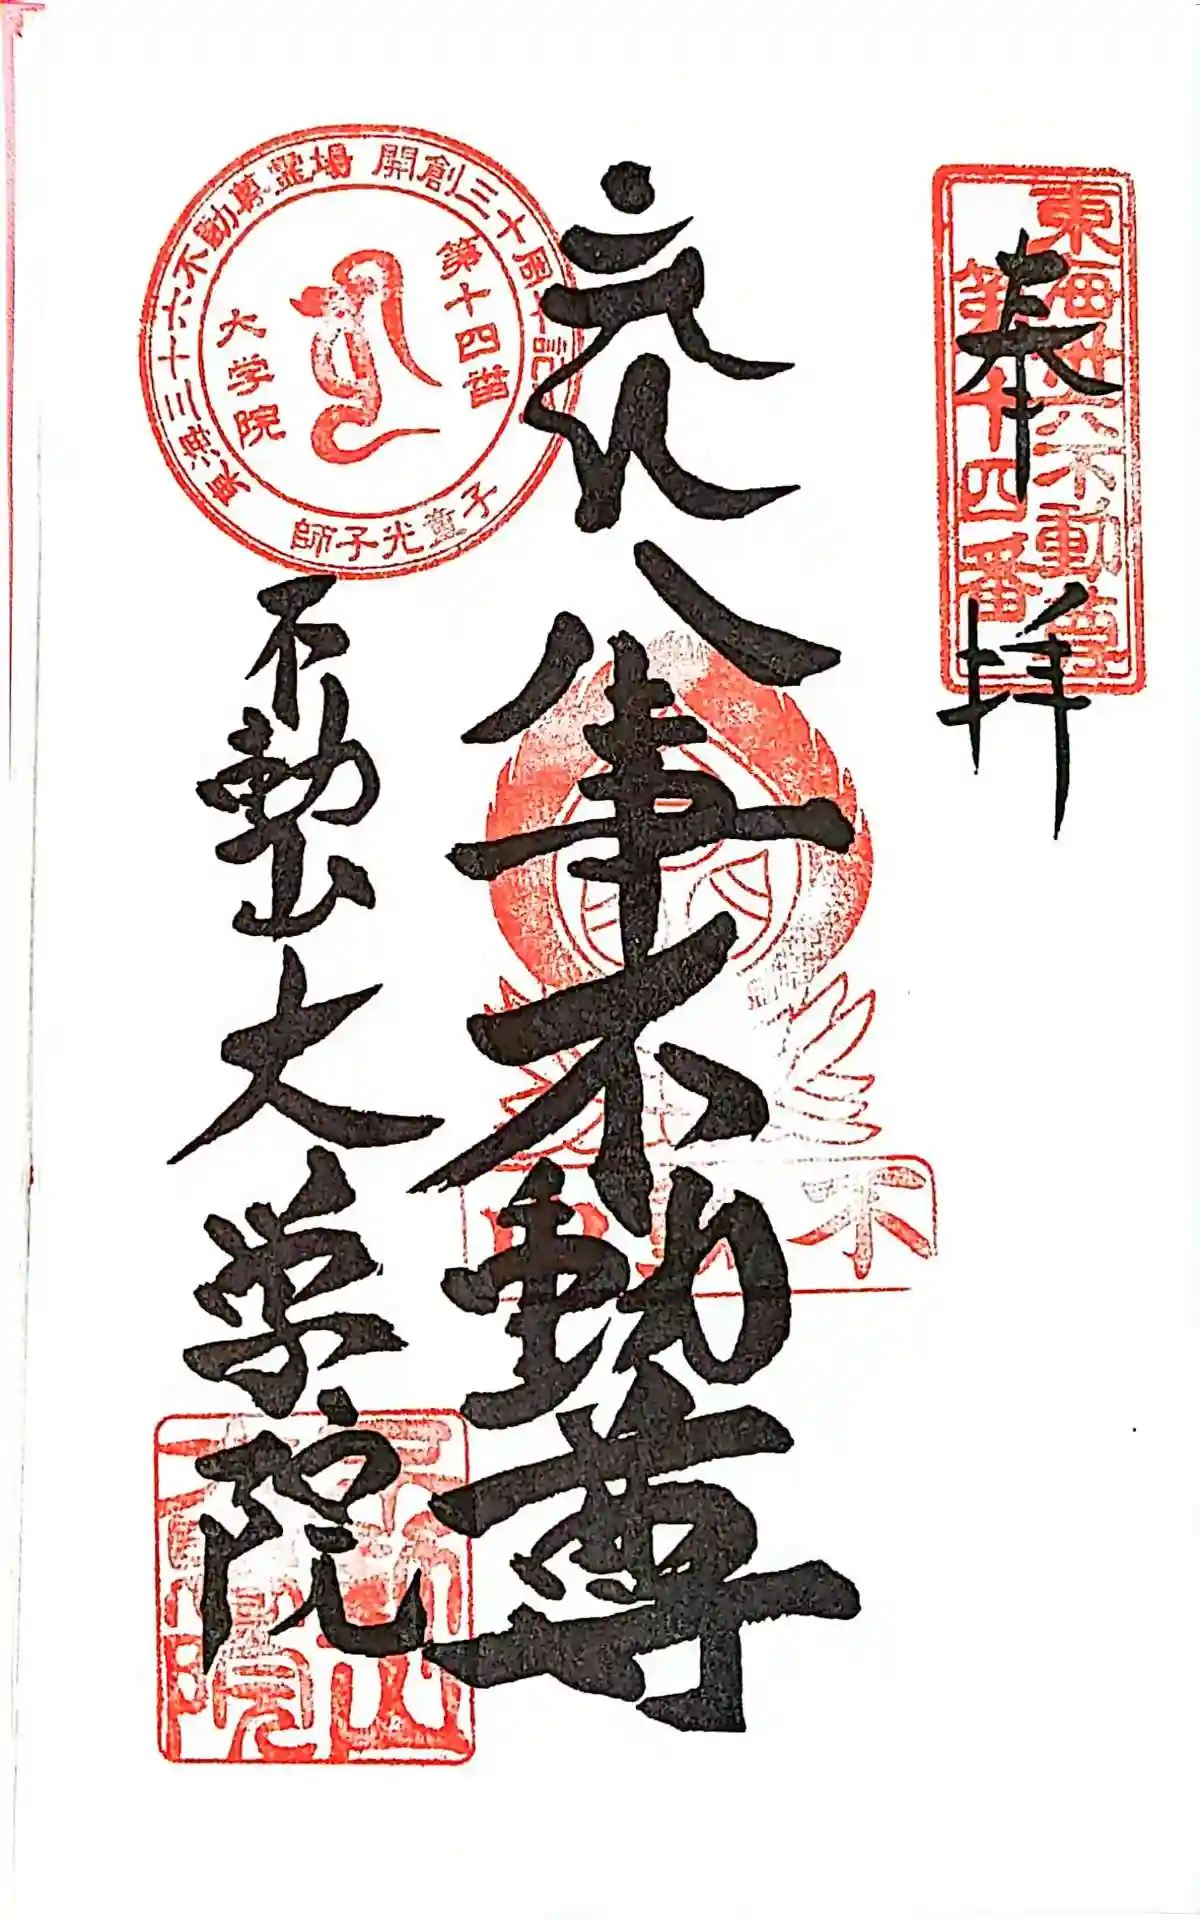 東海卅六不動尊
第十四番
奉拝
八事不動尊
不動山大学院
東海三十六不動尊霊場 開創三十周年記念
第十四番
大学院
師子光童子
不